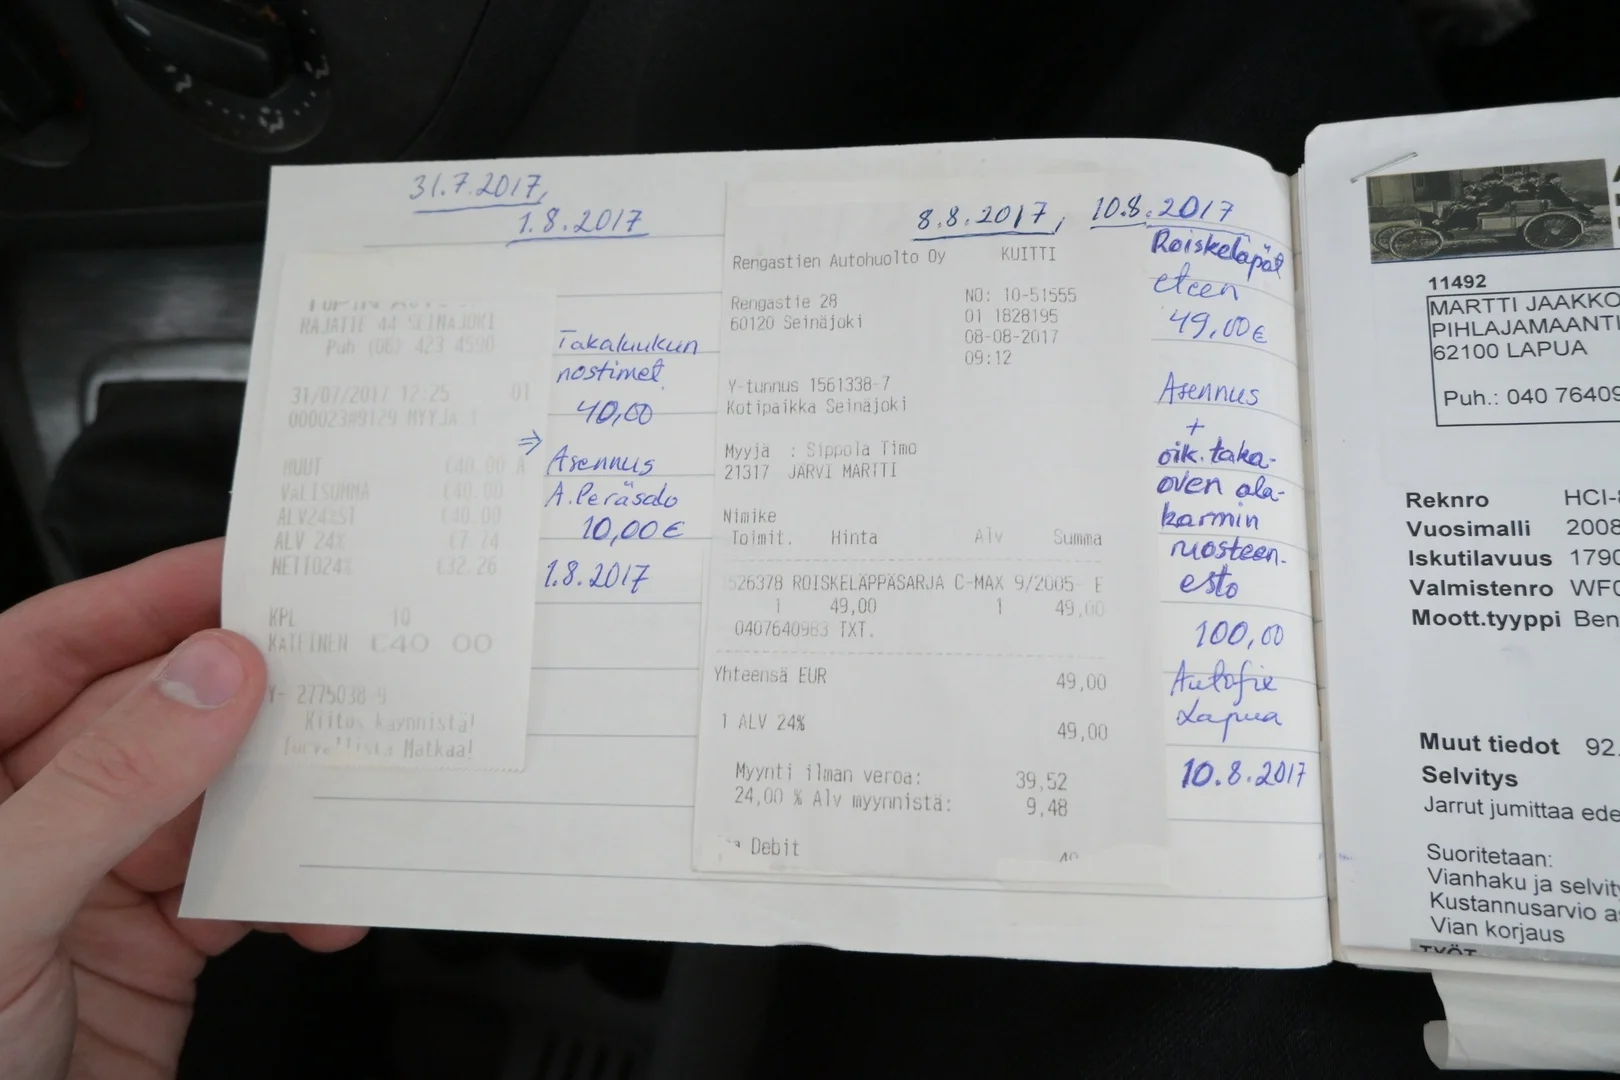 31.7.2017,
1.8.2017
RAJATIE 44 SEINÄJOKI
Puh (06) 423 4590
31/07/2017 12:25 01
000023#9129 MYYJA 1
MUUT €40.00 A
VALISUMMA €40.00
ALV24%ST €40.00
ALV 24% €7.74
NETTO24% €32.26
KPL 10
KATEINEN €40 00
Y- 2775038-9
Kiitos käynnistä!
Turvallista Matkaa!
Takaluukun
nostimet
40,00
⇒ Asennus
A.Peräsalo
10,00€
1.8.2017
8.8.2017, 10.8.2017
Rengastien Autohuolto Oy KUITTI
Rengastie 28 NO: 10-51555
60120 Seinäjoki 01 1828195
08-08-2017
09:12
Y-tunnus 1561338-7
Kotipaikka Seinäjoki
Myyjä : Sippola Timo
21317 JÄRVI MARTTI
Nimike
Toimit. Hinta Alv Summa
526378 ROISKELÄPPÄSARJA C-MAX 9/2005- E
1 49,00 1 49,00
0407640983 TXT.
Yhteensä EUR 49,00
1 ALV 24% 49,00
Myynti ilman veroa: 39,52
24,00 % Alv myynnistä: 9,48
Debit
Roiskeläpät
eteen
49,00€
Asennus
+
oik. taka-
oven ala-
karmin
ruosteen-
esto
100,00
Autofix
Lapua
10.8.2017
11492
MARTTI JAAKKO
PIHLAJAMAANTI
62100 LAPUA
Puh.: 040 76409
Reknro HCI-
Vuosimalli 2008
Iskutilavuus 1790
Valmistenro WF0
Moott.tyyppi Ben
Muut tiedot 92.
Selvitys
Jarrut jumittaa ede
Suoritetaan:
Vianhaku ja selvity
Kustannusarvio a
Vian korjaus
TYÖT